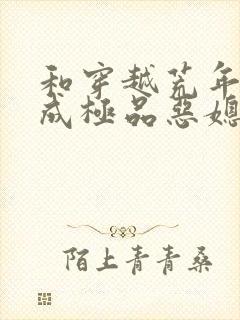 和穿越荒年
成極品惡媳
陌上青青桑